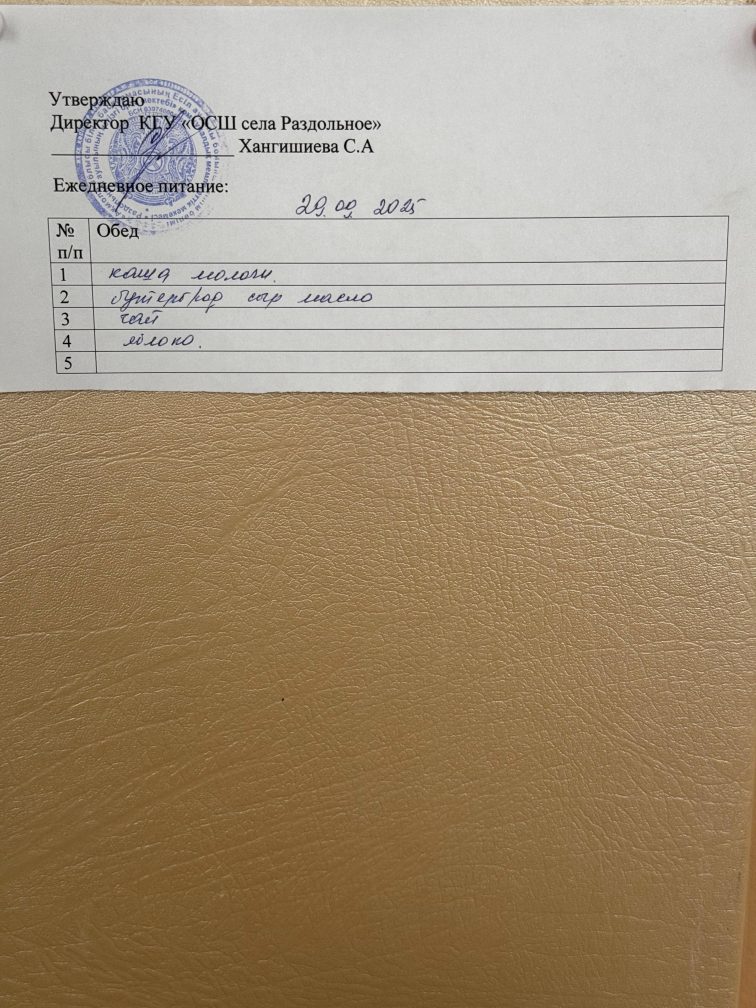 Утверждаю
Директор КГУ «ОСШ села Раздольное»
Хангишиева С.А
Ежедневное питание:
29.09 2025
№ п/п Обед
1 каша молочн.
2 бутерброд сыр масло
3 чай
4 яблоко.
5